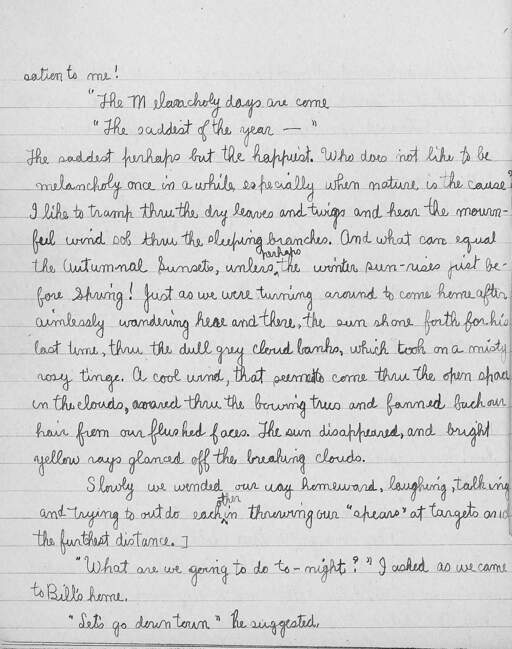 sation to me!
"The Melancholy days are come
"The saddest of the year — "
The saddest perhaps but the happiest. Who does not like to be
melancholy once in a while, especially when nature is the cause?
I like to tramp thru the dry leaves and twigs and hear the mourn-
ful wind sob thru the sleeping branches. And what can equal
the Autumnal Sunsets, unless, perhaps the winter sun-rises just be-
fore Spring! Just as we were turning around to come home after
aimlessly wandering here and there, the sun shone forth for his
last time, thru the dull grey cloud banks, which took on a misty
rosy tinge. A cool wind, that seemed to come thru the open space
in the clouds, soared thru the bowing trees and fanned back our
hair from our flushed faces. The sun disappeared, and bright
yellow rays glanced off the breaking clouds.
Slowly we wended our way homeward, laughing, talking
and trying to out do each other in throwing our "spears" at targets and
the furthest distance. ]
"What are we going to do to-night?" I asked as we came
to Bill's home.
"Let's go down town" he suggested.